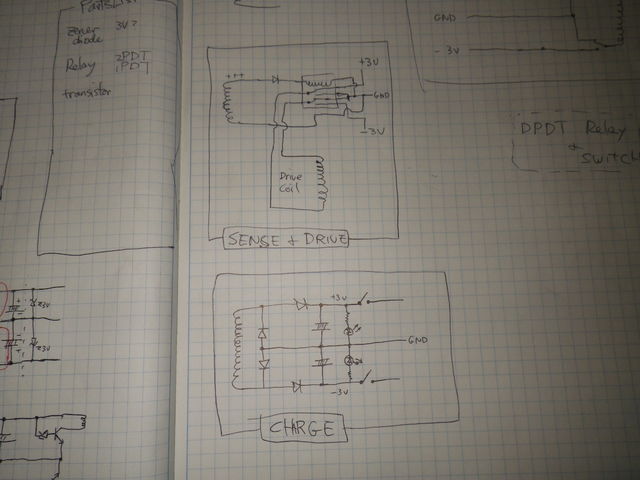 Parts List
zener 3V?
diode
Relay 2PDT
1PDT
transistor
+3V
GND
-3V
Drive
Coil
SENSE + DRIVE
+3V
GND
-3V
CHARGE
GND
-3V
DPDT Relay
+
Switch
z3V
z3V